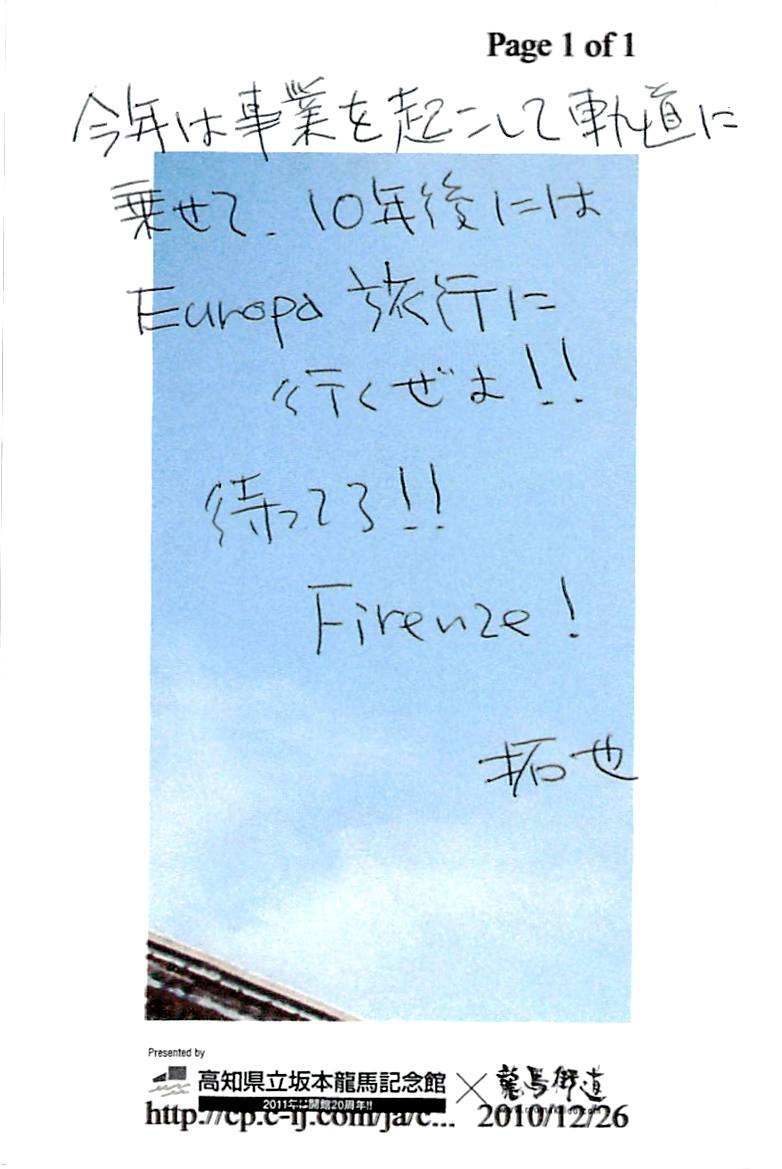 Page 1 of 1
今年は事業を起こして軌道に
乗せて、10年後には
Europa 旅行に
行くぜよ!!
待ってろ!!
Firenze!
拓也
Presented by
高知県立坂本龍馬記念館 × 龍馬街道
2011年は開館20周年!!
http://cp.c-ij.com/ja/c... 2010/12/26